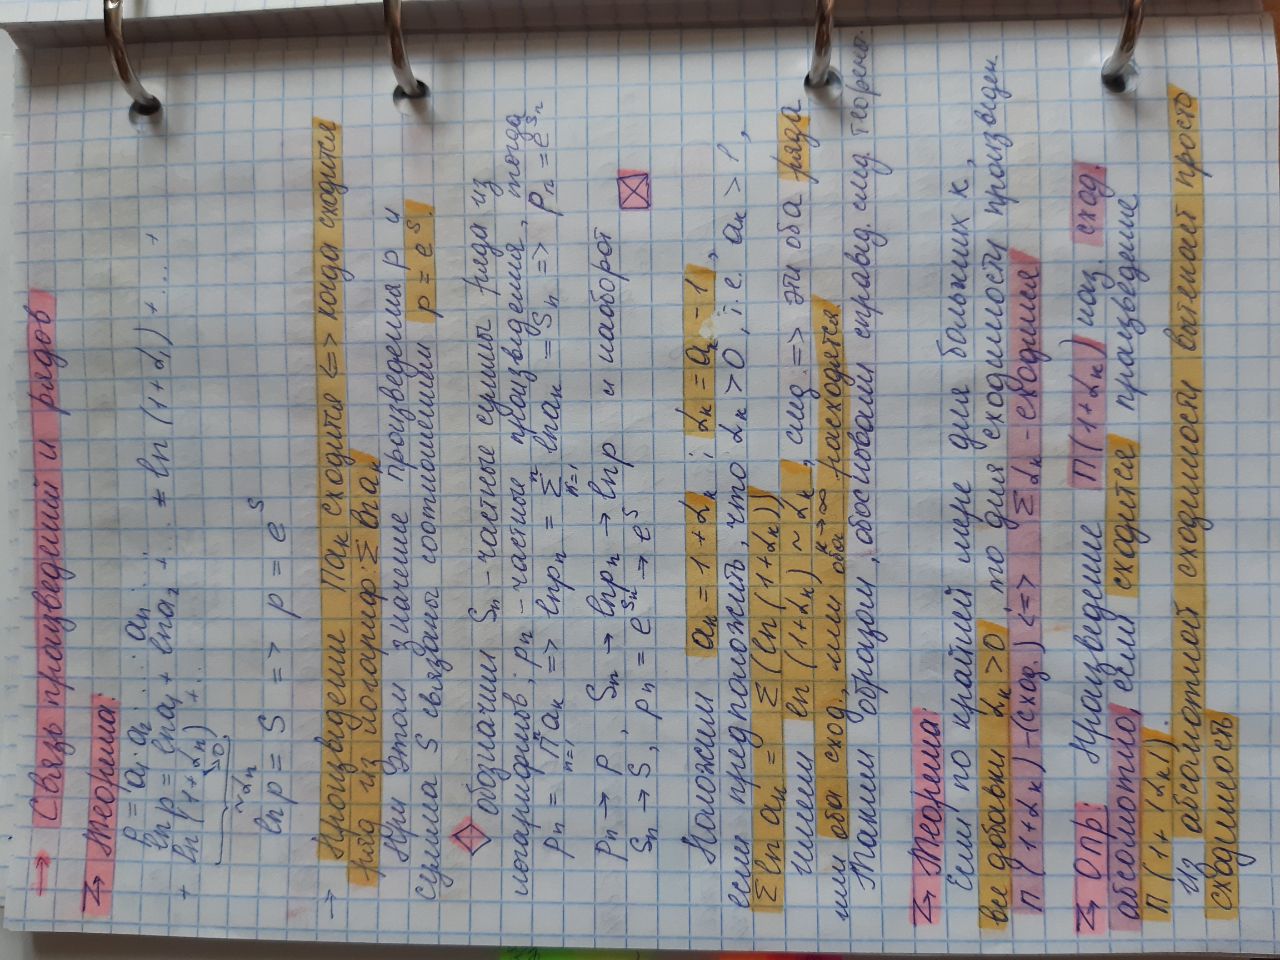 → Связь произведений и рядов
Теорема:
p = a₁ · a₂ · ... · aₙ · ...
ln p = ln a₁ + ln a₂ + ... = ln (1 + α₁) + ... +
+ ln (1 + αₙ) + ...
→0
~ αₙ
ln p = S => p = e^S
→ Произведение Πaₖ сходится <=> когда сходится
ряд из логариф.: Σ ln aₖ
При этом значение произведения p и
сумма S связаны соотношением p = e^S.
обозначим Sₙ - частные суммы ряда из
логарифмов; pₙ - частные произведения, тогда
pₙ = Π_{n=1}^{n} aₖ => ln pₙ = Σ_{k=1}^{n} ln aₖ = Sₙ => pₙ = e^{Sₙ}
pₙ → p, Sₙ → ln pₙ → ln p и наоборот
Sₙ → S, pₙ = e^{Sₙ} → e^S
Положим aₖ = 1 + αₖ ; αₖ = aₖ - 1,
если предположить, что αₖ > 0, т.е. aₖ > 1,
Σ ln aₖ = Σ(ln (1 + αₖ))
имеем ln (1 + αₖ) ~ αₖ, след. => эти оба ряда
k → ∞
или оба сход., или оба расходятся.
Таким образом, обосновали справед. след. теорема.
Теорема:
Если по крайней мере для больших k,
все добавки αₖ > 0, то для сходимости произведен.
Π (1 + αₖ) - (сход.) <=> Σ αₖ - сходился
Опр: Произведение Π(1 + αₖ) наз. сход.
абсолютно, если сходится произведение
Π (1 + |αₖ|).
Из абсолютной сходимости вытекает просто
сходимость